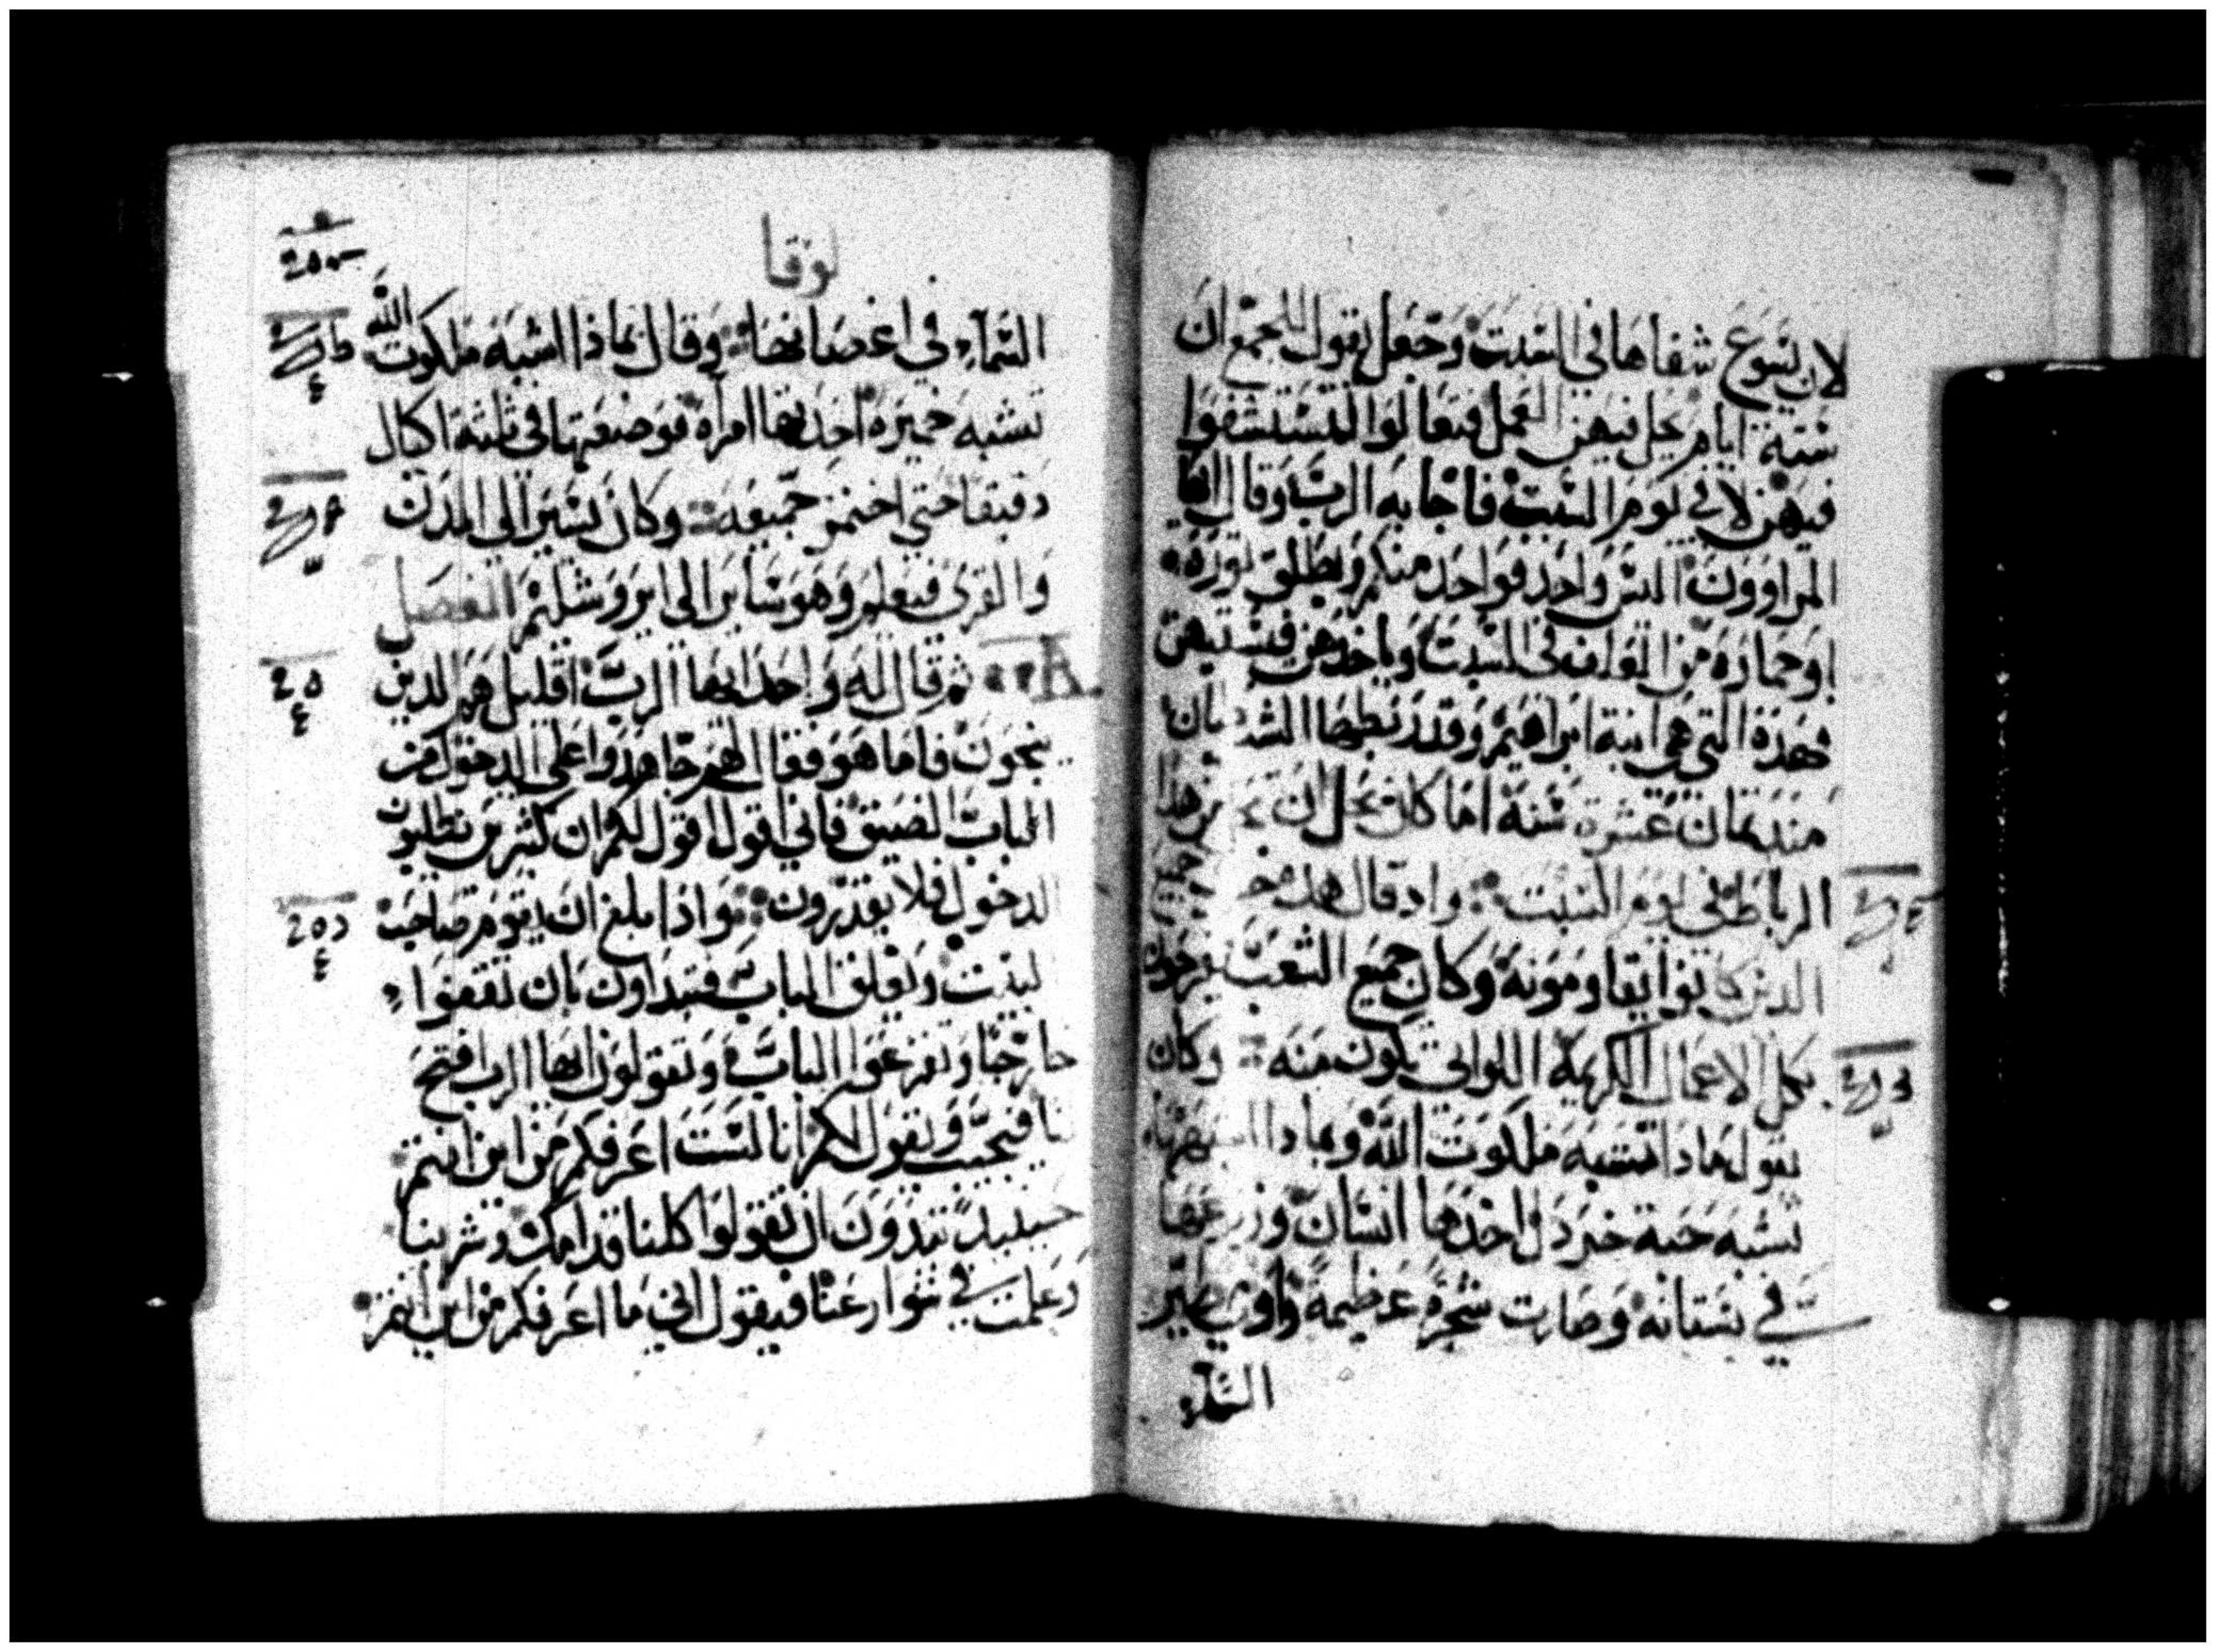 لان يسوع شفاها في السبت وجعل يقول للجمع ان
ستة ايام يحل فيهن العمل فتعالوا لتستشفوا
فيهن لا في يوم السبت فاجابه الرب وقال ايها
المراوون اليس واحد فواحد منكم يطلق ثوره
او حماره من المعلف في السبت وياخذهن فيسقيهن
فهذه التي هي ابنة ابراهيم وقد ربطها الشيطان
منذ ثمان عشرة سنة اما كان يحل ان من هذا
الرباط في يوم السبت واد قال هذه جميع
الذين كانوا يقاومونه وكان جميع الشعب يفرحون
بكل الاعمال الكريمة اللواتي تكون منه وكان
يقول بماذا تشبه ملكوت الله وبماذا
تشبه حبة خردل اخذها انسان وزرعها
في بستانه وصارت شجرة عظيمة واوت طير
السماء
لوقا
السماء في اغصانها وقال بماذا اشبه ملكوت الله
تشبه خميرة اخذتها امراة فوضعتها في ثلثة اكيال
دقيقا حتي اختمر جميعه وكان يسير الي المدن
والقرى فيعلم وهو ساير الى ايروشليم الفصل
ثم قال له واحد ايها الرب اقليل هم الذين
ينجون فاما هو فقال لهم جاهدوا على الدخول من
الباب الضيق فاني اقول اقول لكم ان كثيرين يطلبون
الدخول فلا يقدرون واذا بلغ ان يقوم صاحب
البيت ويغلق الباب فتبداون بان تقفوا
خارجا وتقرعوا الباب وتقولون ايها الرب افتح
لنا فيجيب ويقول لكم انا لست اعرفكم من اين انتم
حينيذ تبدون ان تقولوا كلنا قدامك وشربنا
وعلمت في شوارعنا فيقول اني ما اعرفكم من اين انتم